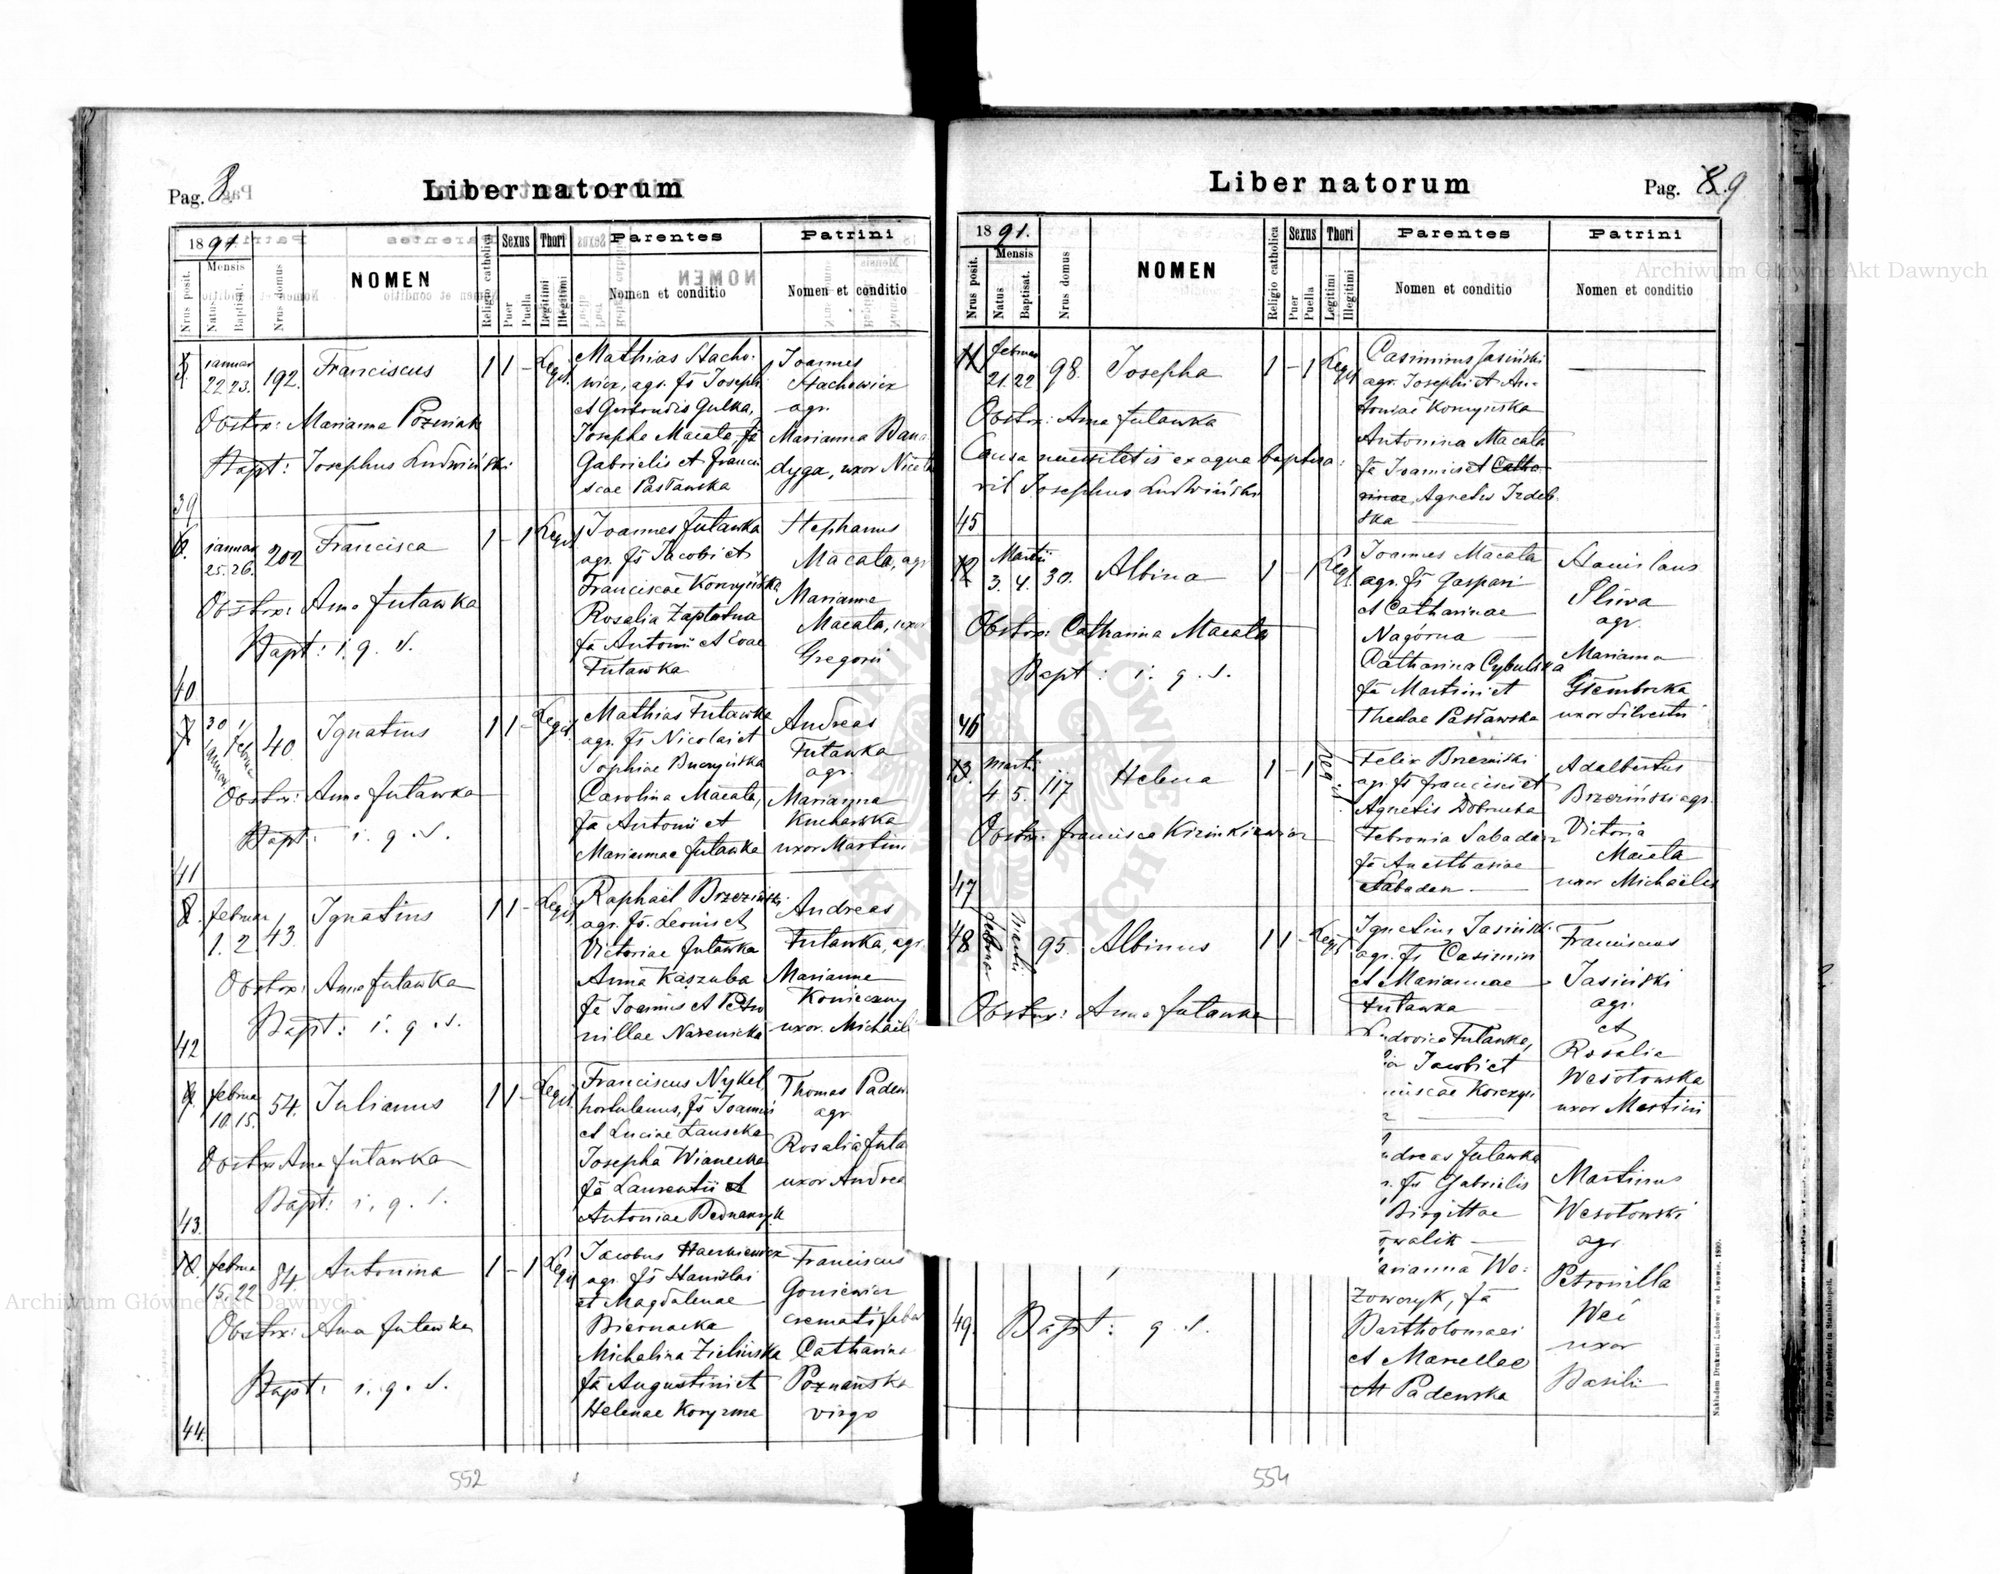 Pag. 8.
Liber natorum
1891
Nrus posit.
Mensis
Natus
Baptisat.
Nrus domus
NOMEN
Religio catholica
Sexus
Puer
Puella
Thori
Legitimi
Illegitimi
Parentes
Nomen et conditio
Patrini
Nomen et conditio
januar
22. 23.
192.
Franciscus
1 1 - Legit.
Obstrx: Marianna Pozniak
Bapt: Josephus Ludwiński
39
Mathias Stacho-
wicz, agr. fs Josephi
et Gertrudis Gulka,
Josepha Macała fa
Gabrielis et Franci
scae Pasławska
Joannes
Stachowicz
agr.
Marianna Bana
dyga, uxor Nicola
januar
25. 26.
202
Francisca
1 - 1 Legit
Obstrx: Anna Futawka
Bapt: i. q. s.
40
Joannes Futawka
agr. fs Jacobi et
Franciscae Korczyńska
Rosalia Zapłotna
fa Antonii et Evae
Futawka
Stephanus
Macała, agr
Marianna
Macała, uxor
Gregorii
30 1
januar febru
40
Ignatius
1 1 - Legit.
Obstrx: Anna Futawka
Bapt: i. q. s.
41
Mathias Futawka
agr. fs Nicolai et
Sophiae Buczyńska
Carolina Macała,
fa Antonii et
Mariannae Futawka
Andreas
Futawka
agr.
Marianna
Kucharska
uxor Martini
8.
februar
1. 2
43.
Ignatius
1 1 - Legit
Obstrx: Anna Futawka
Bapt: i. q. s.
42
Raphael Brzeziński
agr. fs. Leonis et
Victoriae Futawka
Anna Kaszuba
fa Joannis et Petro
nillae Nazewicka
Andreas
Futawka, agr.
Marianna
Konieczny
uxor. Michaeli
9.
februa
10. 15.
54.
Julianus
1 1 - Legit.
Obstrx Anna Futawka
Bapt: i. q. s.
43.
Franciscus Nykel
hortulanus, fs Joannis
et Luciae
Josepha Wianecka
fa Laurentii et
Antoniae Bednarczyk
Thomas Padew
agr
Rosalia Futa
uxor Andrea
10.
februa
15. 22
84.
Antonina
1 - 1 Legit
Obstrx: Anna Futawka
Bapt: i. q. s.
44.
Jacobus
agr. fs Stanislai
et Magdalenae
Biernacka
Michalina Zielińska
fa Augustini et
Helenae Koryzma
Franciscus
Goniewicz
Catharina
Poznańska
virgo
552
Liber natorum
Pag. 8. 9
1891.
Nrus posit.
Mensis
Natus
Baptisat.
Nrus domus
NOMEN
Religio catholica
Sexus
Puer
Puella
Thori
Legitimi
Illegitimi
Parentes
Nomen et conditio
Patrini
Nomen et conditio
11
februar
21. 22
98.
Josepha
1 - 1 Legit
Obstrx: Anna Futawka
Causa necessitatis ex aqua baptisa:
vit Josephus Ludwiński
45
Casimirus Jasiński
agr. Josephi et An-
toniae Korczyńska
Antonina Macała
fa Joannis et Catha
rinae Agnetis Izdeb
ska
12
Martii
3. 4.
30.
Albina
1 - 1 Legit
Obstrx: Catharina Macała
Bapt: i. q. s.
46
Joannes Macała
agr. fs Gaspari
et Catharinae
Nagórna
Catharina Cybulska
fa Martini et
Theclae Pasławska
Stanislaus
Śliwa
agr.
Marianna
Głembocka
uxor Silvestri
13.
Martii
4. 5.
117
Helena
1 - 1 Legit
Obstrx. Francisca
47
Felix Brzeziński
agr. fs Francisci et
Agnetis Dobrucka
Febronia Sabadasz
fa Anasthasiae
Sabadasz
Adalbertus
Brzeziński agr.
Victoria
Macała
uxor Michaëlis
48
Februa
Martii
95.
Albinus
1 1 - Legit
Obstrx: Anna Futawka
Ignatius Jasiński
agr. fs Casimiri
et Mariannae
Futawka
udovica Futawka,
Jacobi et
ciscae Korczyń
Franciscus
Jasiński
agr.
et
Rosalia
Wesołowska
uxor Martini
49.
Bapt: q. s.
ndreas Futawka
r. fs Gabrielis
Birgittae
owalik
arianna Wo:
zowczyk, fa
Bartholomaei
et Marcellae
Padewska
Martinus
Wesołowski
agr
Petronilla
Weś
uxor
Basilii
554
Nakładem Drukarni Ludowej we Lwowie. 1890.
Archiwum Główne Akt Dawnych
Archiwum Główne Akt Dawnych